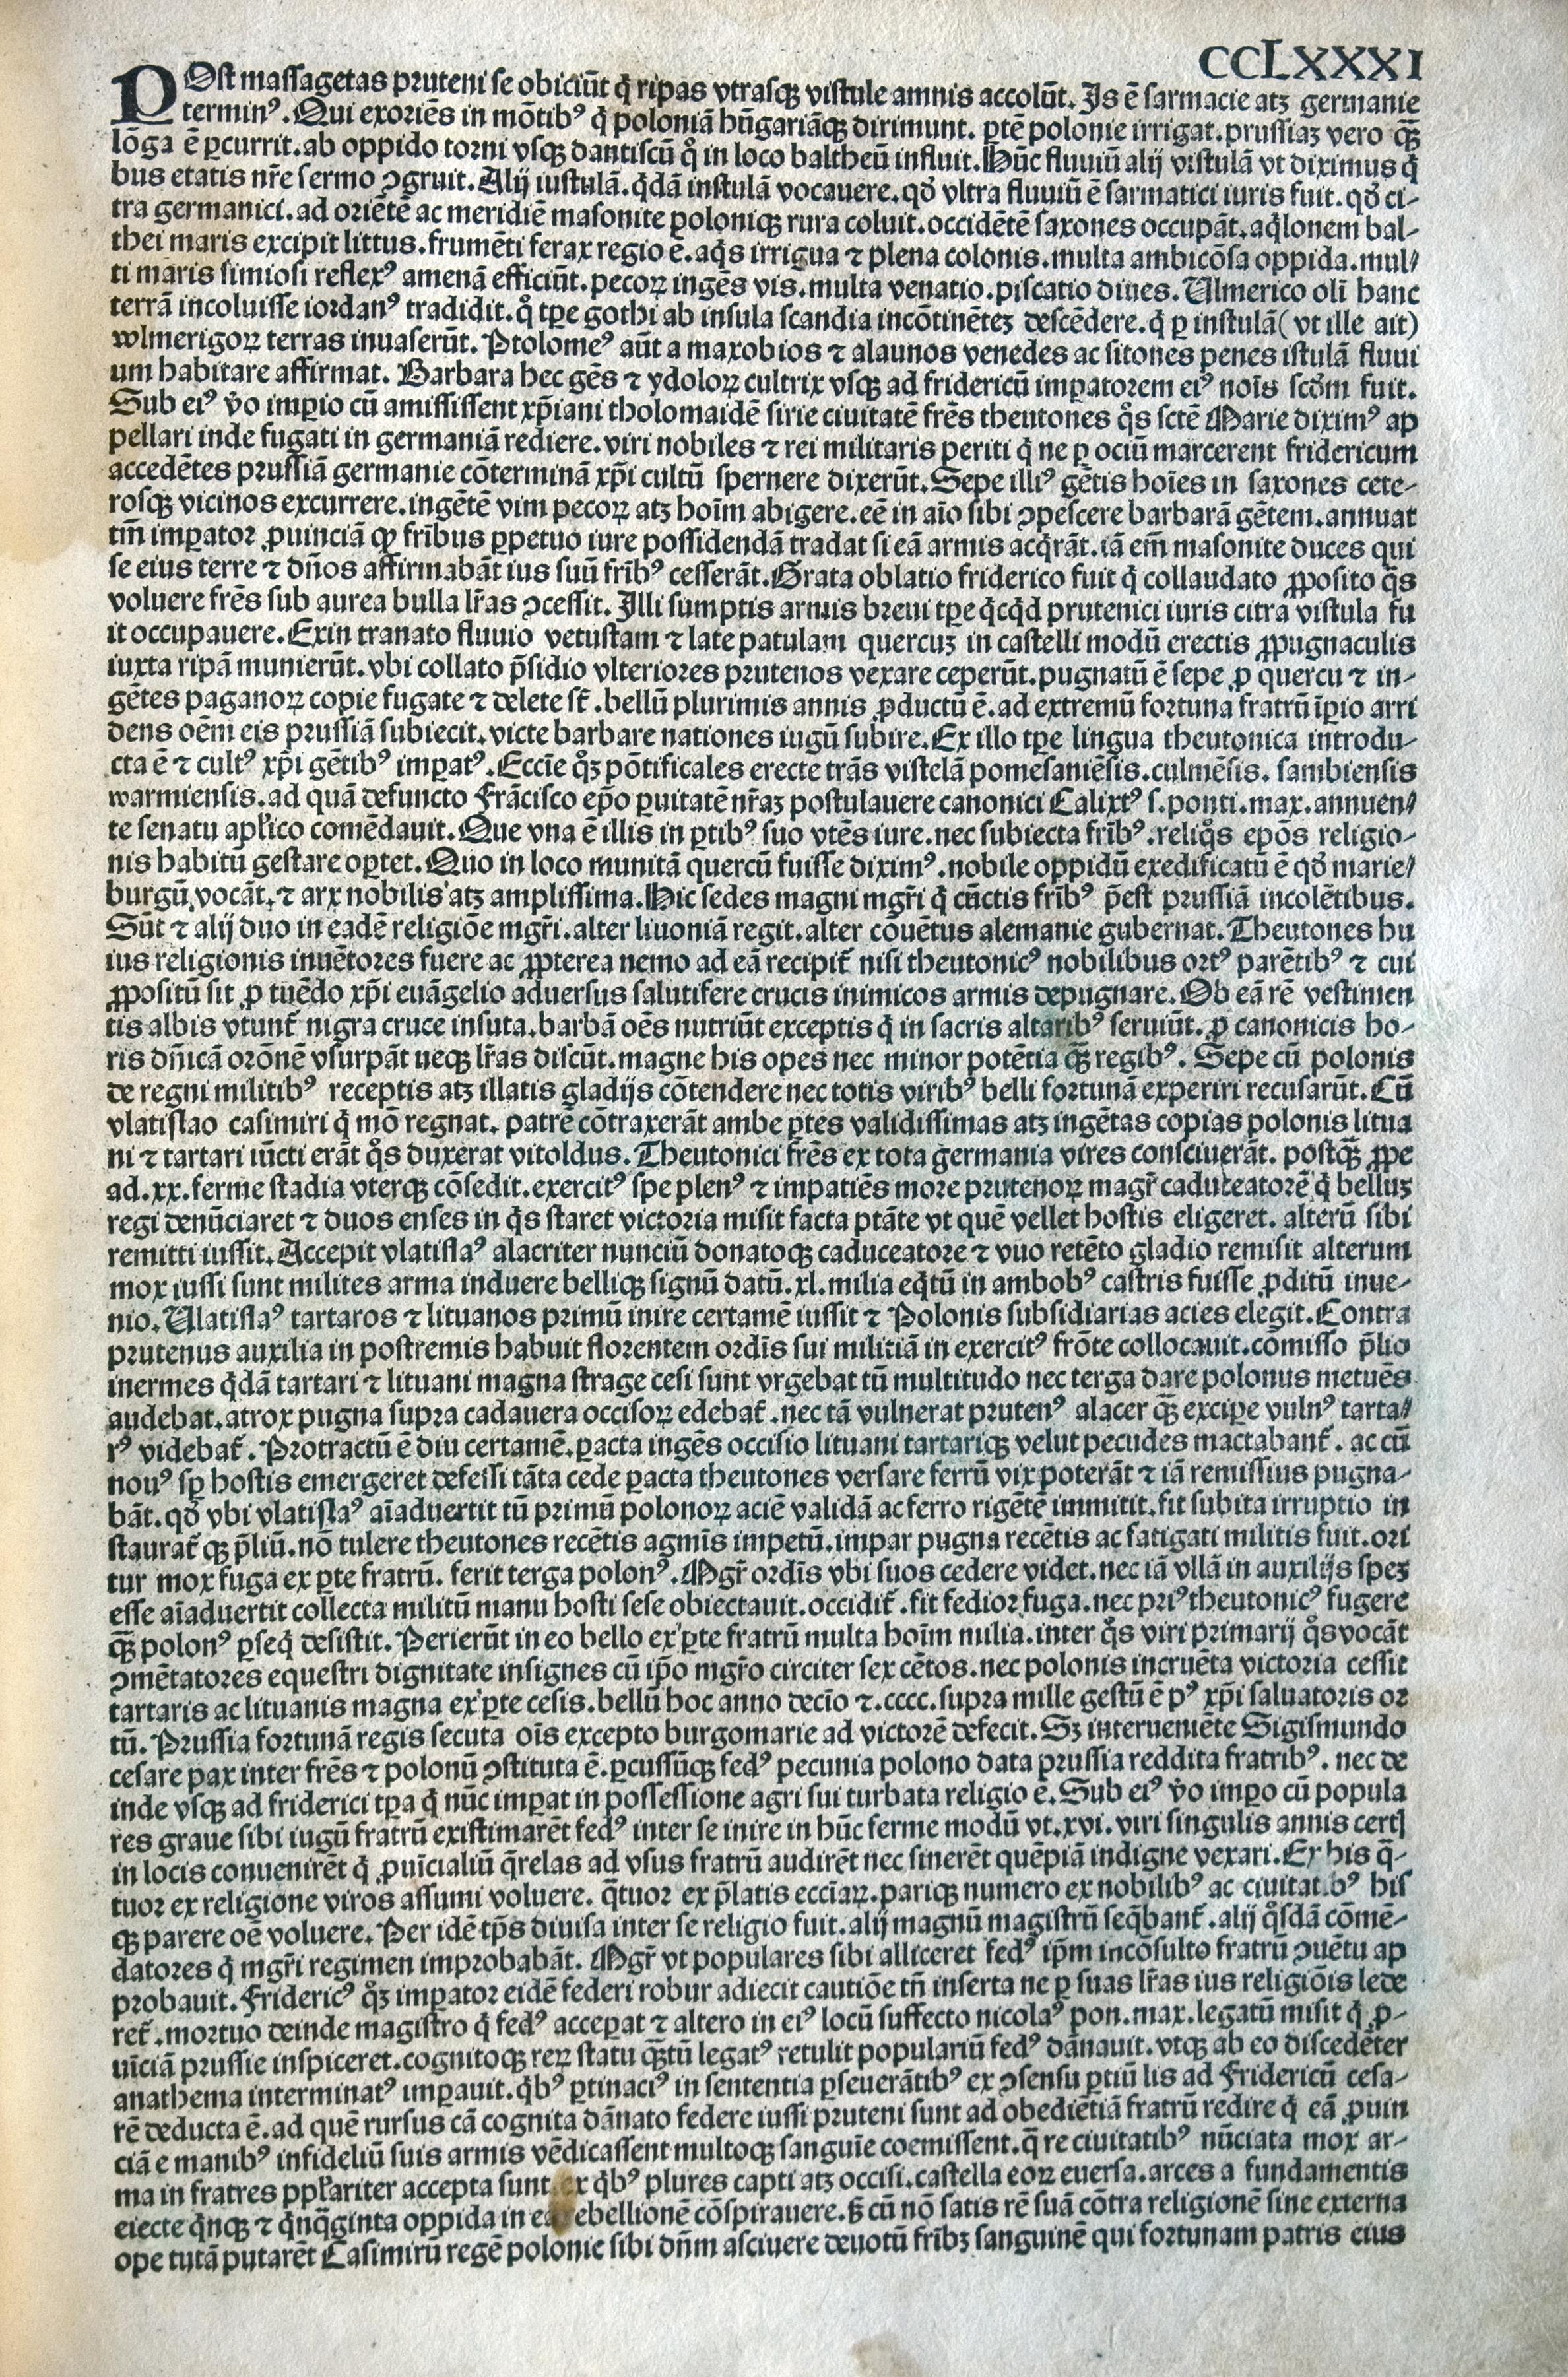 CCLXXXI
POst massagetas pruteni se obiciūt q̄ ripas vtrasqȝ vistule amnis accolūt. Is ē sarmacie atȝ germanie
terminꝰ. Qui exoriēs in mōtibꝰ q̄ poloniā hūgariāqȝ dirimunt. ꝑtē polonie irrigat. prussiaȝ vero qȝ̄
lōga ē ꝑcurrit. ab oppido torni vsqȝ dantiscū q̊ in loco baltheū influit. Hūc fluuiū alij vistulā vt diximus q̄
bus etatis nr̄e sermo ꝯgruit. Alij iustulā. q̄dā instulā vocauere. qđ vltra fluuiū ē sarmatici iuris fuit. qđ ci-
tra germanici. ad oriētē ac meridiē masonite poloniqȝ rura coluit. occidētē saxones occupāt. aq̄lonem bal-
thei maris excipit littus. frumēti ferax regio ē. aq̄s irrigua ⁊ plena colonis. multa ambicōsa oppida. mul/
ti maris simiosi reflexꝰ amenā efficiūt. pecoꝝ ingēs vis. multa venatio. piscatio diues. Ulmerico oli hanc
terrā incoluisse iordanꝰ tradidit. q̊ tꝑe gothi ab insula scandia incōtinētez descēdere. q̄ ꝑ instulā( vt ille ait)
wlmerigoꝝ terras inuaserūt. Ptolomeꝰ aūt a maxobios ⁊ alaunos venedes ac sitones penes istulā fluui
um habitare affirmat. Barbara hec gēs ⁊ ydoloꝝ cultrix vsqȝ ad fridericū imꝑatorem eiꝰ nōis scđm fuit.
Sub eiꝰ v̊o imꝑio cū amisissent xp̄iani tholomaidē sirie ciuitatē frēs theutones q̊s sctē Marie diximꝰ ap
pellari inde fugati in germaniā rediere. viri nobiles ⁊ rei militaris periti q̄ ne ꝑ ociū marcerent fridericum
accedētes prussiā germanie cōterminā xp̄i cultū spernere dixerūt. Sepe illiꝰ gētis hoīes in saxones cete-
rosqȝ vicinos excurrere. ingētē vim pecoꝝ atȝ hoīm abigere. eē in aīo sibi ꝯpescere barbarā gētem. annuat
tm̄ imꝑator ꝓuinciā qȝ fr̄ibus ꝑpetuo iure possidendā tradat si eā armis acq̄rāt. iā em̄ masonite duces qui
se eius terre ⁊ dn̄os affirmabāt ius suū fr̄ibꝰ cesserāt. Grata oblatio friderico fuit q̄ collaudato ꝓposito q̄s
voluere frēs sub aurea bulla lr̄as ꝯcessit. Illi sumptis armis breui tꝑe q̄cq̄d prutenici iuris citra vistula fu
it occupauere. Exin tranato fluuio vetustam ⁊ late patulam quercuȝ in castelli modū erectis ꝓpugnaculis
iuxta ripā munierūt. vbi collato p̄sidio vlteriores prutenos vexare ceperūt. pugnatū ē sepe ꝓ quercu ⁊ in-
gētes paganoꝝ copie fugate ⁊ delete st̄. bellū plurimis annis ꝓductū ē. ad extremū fortuna fratrū iꝑio arri
dens oēm eis prussiā subiecit. victe barbare nationes iugū subire. Ex illo tꝑe lingua theutonica introdu-
cta ē ⁊ cultꝰ xp̄i gētibꝰ imꝑatꝰ. Eccīe q̊ȝ pōtificales erecte trās vistelā pomesaniēsis. culmēsis. sambiensis
warmiensis. ad quā defuncto Frācisco ep̄o ꝑuitatē nr̄aȝ postulauere canonici Calixtꝰ s. ponti. max. annuen/
te senatu apl̄ico comēdauit. Que vna ē illis in ꝑtibꝰ suo vtēs iure. nec subiecta fr̄ibꝰ. reliq̊s ep̄os religio-
nis habitū gestare oꝑtet. Quo in loco munitā quercū fuisse diximꝰ. nobile oppidū exedificatū ē qđ marie/
burgū vocāt. ⁊ arx nobilis atȝ amplissima. Hic sedes magni mgr̄i q̄ cūctis fr̄ibꝰ p̄est prussiā incolētibus.
Sūt ⁊ alij duo in eadē religiōe mgr̄i. alter liuoniā regit. alter cōuētus alemanie gubernat. Theutones hu
ius religionis inuētores fuere ac ꝓpterea nemo ad eā recipit̄ nisi theutonicꝰ nobilibus ortꝰ parētibꝰ ⁊ cui
ꝓpositū sit ꝓ tuēdo xp̄i euāgelio aduersus salutifere crucis inimicos armis depugnare. Ob eā rē vestimen
tis albis vtunt̄ nigra cruce insuta. barbā oēs nutriūt exceptis q̄ in sacris altaribꝰ seruiūt. ꝓ canonicis ho-
ris dn̄icā orōnē vsurpāt neqȝ lr̄as discūt. magne his opes nec minor potētia qȝ̄ regibꝰ. Sepe cū polonis
de regni militibꝰ receptis atȝ illatis gladijs cōtendere nec totis viribꝰ belli fortunā experiri recusarūt. Cū
vlatislao casimiri q̄ mō regnat. patrē cōtraxerāt ambe ꝑtes validissimas atȝ ingētas copias polonis litua
ni ⁊ tartari iūcti erāt q̊s duxerat vitoldus. Theutonici frēs ex tota germania vires consciuerāt. postqȝ̄ ꝓpe
ad. xx. ferme stadia vterqȝ cōsedit. exercitꝰ spe plenꝰ ⁊ impatiēs more prutenoꝝ magr̄ caduceatorē q̄ belluȝ
regi denūciaret ⁊ duos enses in q̄s staret victoria misit facta ptāte vt quē vellet hostis eligeret. alterū sibi
remitti iussit. Accepit vlatislaꝰ alacriter nunciū donatoqȝ caduceatore ⁊ vno retēto gladio remisit alterum
mox iussi sunt milites arma induere belliqȝ signū datū. xl. milia eq̄tū in ambobꝰ castris fuisse ꝓditū inue-
nio. Ulatislaꝰ tartaros ⁊ lituanos primū inire certamē iussit ⁊ Polonis subsidiarias acies elegit. Contra
prutenus auxilia in postremis habuit florentem ordīs sui militiā in exercitꝰ frōte collocauit. cōmisso p̄lio
inermes q̄dā tartari ⁊ lituani magna strage cesi sunt vrgebat tū multitudo nec terga dare polonus metuēs
audebat. atrox pugna supra cadauera occisoꝝ edebat̄. nec tā vulnerat prutenꝰ alacer qȝ̄ exciꝑe vulnꝰ tarta/
rꝰ videbat̄. Protractū ē diu certamē. ꝑacta ingēs occisio lituani tartariqȝ velut pecudes mactabant̄. ac cū
nouꝰ sꝑ hostis emergeret defessi tāta cede ꝑacta theutones versare ferrū vix poterāt ⁊ iā remissius pugna-
bāt. qđ vbi vlatislaꝰ aīaduertit tū primū polonoꝝ aciē validā ac ferro rigētē immitit. fit subita irruptio in
staurat̄ qȝ p̄liū. nō tulere theutones recētis agmīs impetū. impar pugna recētis ac fatigati militis fuit. ori
tur mox fuga ex ꝑte fratrū. ferit terga polonꝰ. Mgr̄ ordīs vbi suos cedere videt. nec iā vllā in auxilijs speȝ
esse aīaduertit collecta militū manu hosti sese obiectauit. occidit̄. fit fedior fuga. nec priꝰ theutonicꝰ fugere
qȝ̄ polonꝰ ꝑseq̄ desistit. Perierūt in eo bello ex ꝑte fratrū multa hoīm milia. inter q̊s viri primarij q̊s vocāt
ꝯmētatores equestri dignitate insignes cū ip̄o mgr̄o circiter sex cētos. nec polonis incruēta victoria cessit
tartaris ac lituanis magna ex ꝑte cesis. bellū hoc anno decīo ⁊. cccc. supra mille gestū ē pꝰ xp̄i saluatoris or
tū. Prussia fortunā regis secuta oīs excepto burgomarie ad victorē defecit. Sȝ interueniēte Sigismundo
cesare pax inter frēs ⁊ polonū ꝯstituta ē. ꝑcussūqȝ fedꝰ pecunia polono data prussia reddita fratribꝰ. nec de
inde vsqȝ ad friderici tꝑa q̄ nūc imꝑat in possessione agri sui turbata religio ē. Sub eiꝰ v̊o imꝑo cū popula
res graue sibi iugū fratrū existimarēt fedꝰ inter se inire in hūc ferme modū vt. xvi. viri singulis annis cert̄
in locis conuenirēt q̄ ꝓuīcialiū q̄relas ad vsus fratrū audirēt nec sinerēt quēpiā indigne vexari. Ex his q̄-
tuor ex religione viros assumi voluere. q̄tuor ex p̄latis ecclīaꝝ. pariqȝ numero ex nobilibꝰ ac ciuitatibꝰ his
qȝ parere oē voluere. Per idē tp̄s diuisa inter se religio fuit. alij magnū magistrū seq̄bant̄. alij q̊sdā cōmē-
datores q̄ mgr̄i regimen improbabāt. Mgr̄ vt populares sibi alliceret fedꝰ ip̄m incōsulto fratrū ꝯuētu ap
probauit. Fridericꝰ q̊ȝ imꝑator eidē federi robur adiecit cautiōe tn̄ inserta ne ꝑ suas lr̄as ius religiōis lede
ret̄. mortuo deinde magistro q̄ fedꝰ acceꝑat ⁊ altero in eiꝰ locū suffecto nicolaꝰ pon. max. legatū misit q̄ ꝓ-
uīciā prussie inspiceret. cognitoqȝ reꝝ statu qȝ̄tū legatꝰ retulit populariū fedꝰ dānauit. vtqȝ ab eo discedēter
anathema interminatꝰ imꝑauit. q̄bꝰ ꝑtinaciꝰ in sententia ꝑseuerātibꝰ ex ꝯsensu ꝑtiū lis ad Fridericū cesa-
rē deducta ē. ad quē rursus cā cognita dānato federe iussi pruteni sunt ad obediētiā fratrū redire q̄ eā ꝓuin
ciā e manibꝰ infideliū suis armis vēdicassent multoqȝ sanguīe coemissent. q̄ re ciuitatibꝰ nūciata mox ar-
ma in fratres ppl̄ariter accepta sunt ex q̄bꝰ plures capti atȝ occisi. castella eoꝝ euersa. arces a fundamentis
eiecte q̄nqȝ ⁊ q̄nq̄ginta oppida in ea rebellionē cōspirauere. ß cū nō satis rē suā cōtra religionē sine externa
ope tutā putarēt Casimirū regē polonie sibi dn̄m asciuere deuotū fr̄ibȝ sanguinē qui fortunam patris eius